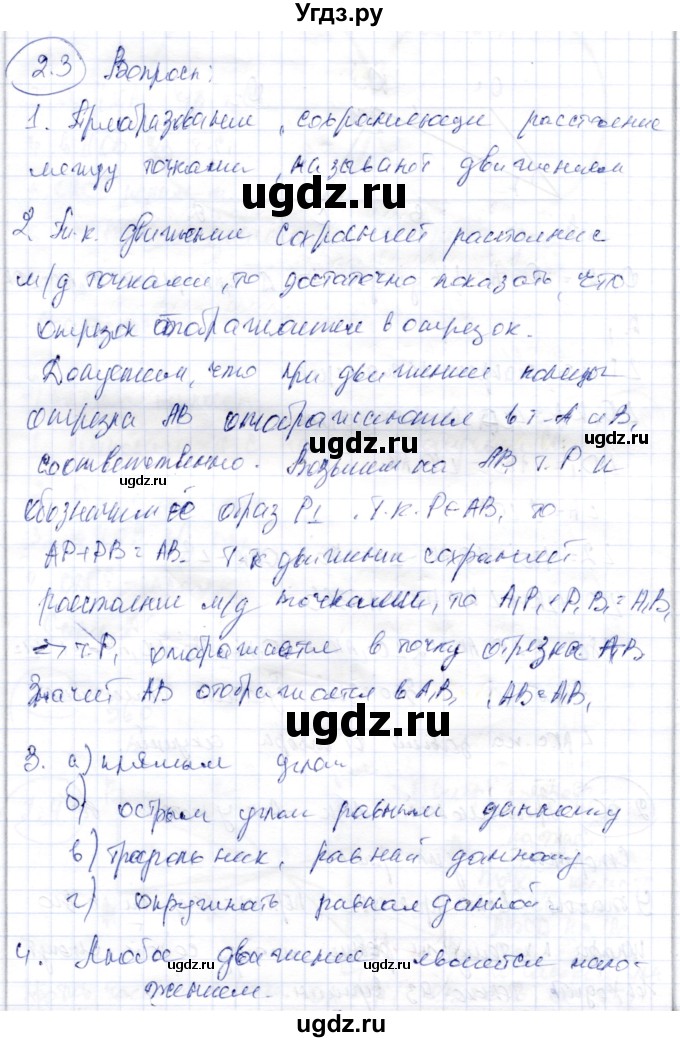 Угдз.ру
2.3 Вопросы:
1. Преобразование, сохраняющее расстояние
между точками, называют движением
ugdz.ru
2. Т.к. движение сохраняет расстояние
м/д точками, то достаточно показать, что
отрезок отображается в отрезок.
Допустим, что при движении концы
ugdz.ru ugdz.ru
отрезка AB отображаются в т-А и B1
соответственно. Возьмем на AB, т. P и
ugdz.ru
обозначим её образ P1. Т.к. P∈AB, то
AP+PB=AB. Т.к движении сохраняет
расстояние м/д точками, то A1P1+P1B1=A1B1
ugdz.ru
=> т.P1 отображается в точку отрезка A1B1
Значит AB отображается в A1B1, AB=A1B1
ugdz.ru
3. а) прямым углом
б) острым углом равным данному
в) треугольник, равный данному
г) окружность равная данной
ugdz.ru ugdz.ru
4. Любое движение является нало-
жением.
ugdz.ru